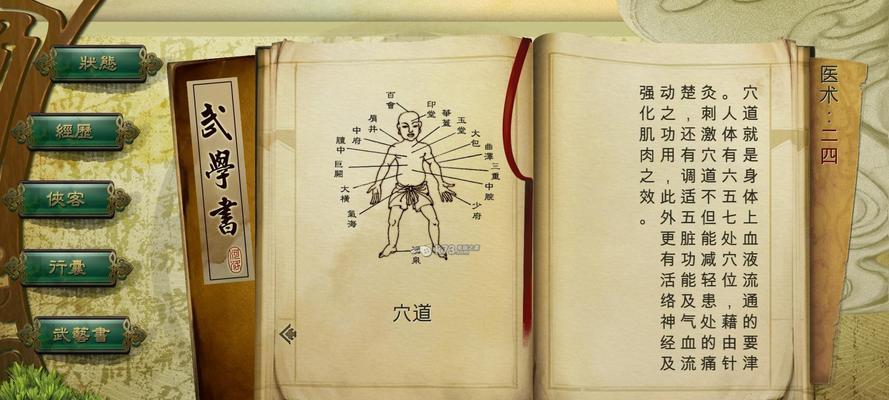 狀態
經歷
俠客
行囊
武藝書
武學書
百會
印堂
華蓋
玉堂
大包
曲澤
三重
中脘
少府
肩井
中府
膻中
巨闕
大橫
氣海
泉
穴道
穴道就是身体上血液流通的要津
。人体有六五七处穴位，藉由针
灸刺激穴道不但能减轻患处的痛
楚，还有调适五脏功能及气血流
动之功用，此外更有活络神经及
强化肌肉之效。
医术：二四